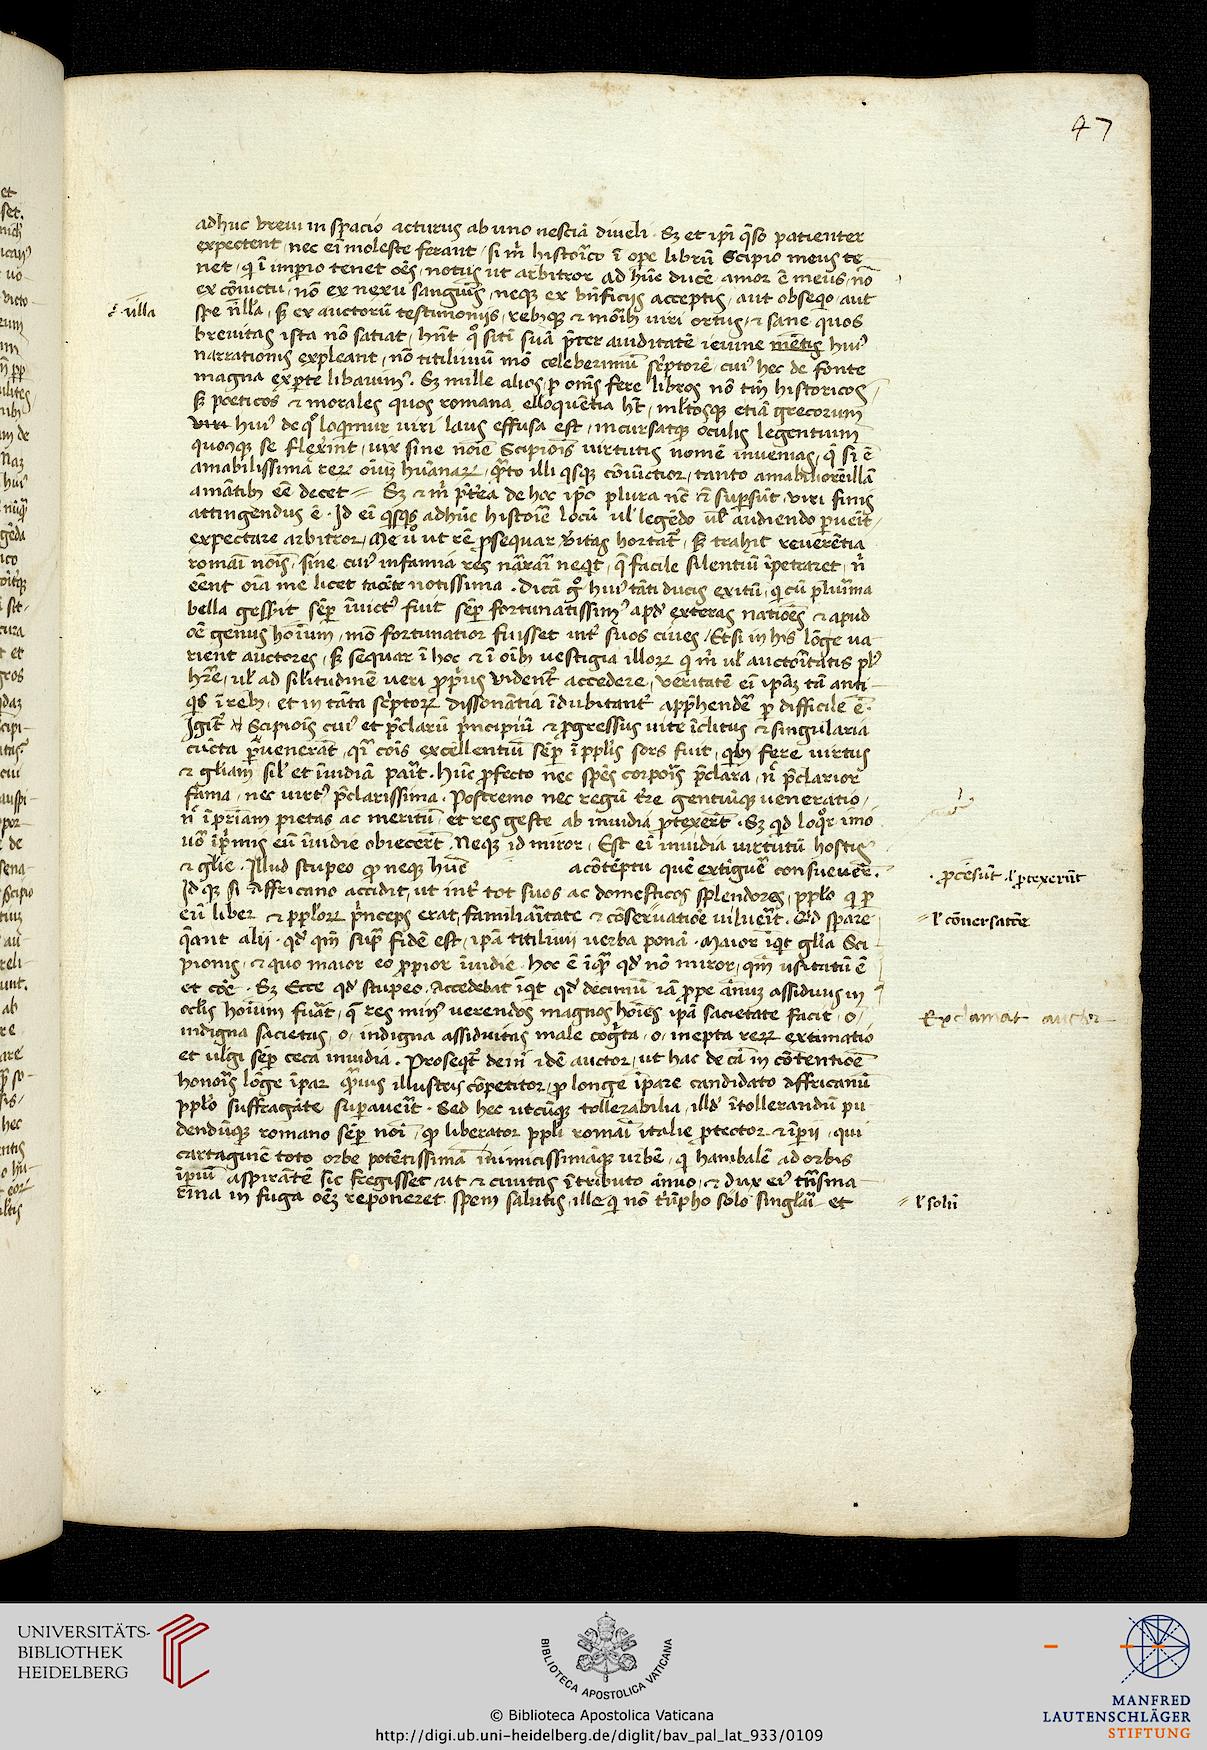 47
adhuc brevi in spacio acturus ab uno nescia diuelli · Sz et ipi qso patienter
expectent, nec ei moleste ferant, si m̄ historico ī ope librū Scipio meus te
net, qi ī imperio tenet oēs, notus ut arbitror ad hūc ducē amor ē meus, nō
ex cōuictu, nō ex nexu sanguis, neqz ex bn̄ficijs acceptis, aut obseqio, aut
ē · ulla
spe n̄lla, sz ex auctorū testimonijs, rebqz et mōib viri ortus, et sane quos
brevitas ista nō satiat, hn̄t qo sitī suā p̄ter auiditatē ieiune mētis hui9
narrationis expleant, nō titiliuiū mō celeberimū sc̄ptorē, cui9 hec de fonte
magna ex parte libauim9. Sz mille alios, p oms fere libros nō tm̄ historicos,
sz poeticos et morales quos romana elloquētia ht̄, mltosqz etiā grecorum
hui9 de qo loqimur uiri laus effusa est, incursatqz oculis legentium
quocqz se flexerint, uix sine noīe Scipiois virtutis nomē inuenias, qe si ē
amabilissima rerz oīuz humanarz, qto illi qsqz cōiūctior, tanto amabiliorē illā
amātib eē decet Sz et m̄ p̄tea de hoc ipo plura nc̄ supsūt, viri finis
attingendus ē · Id ei qsqs adhūc historiē locū ul legēdo ul audiendo puēit,
expectare arbitror, Me uo ut rē psequar v̄itas hortat, sz trahit reuerētia
romāi nois, sine cui9 infamia res narrari neqit, qe facile silentiū īpetraret, n̄
eēnt oīa me licet tacēte notissima. Dicā go hui9 tāti ducis exitū, qi cū plurima
bella gessit sēp inuict9 fuit sēp fortunatissim9 apd exteras natiōes et apud
oē genus hoīum, mō fortunatior fuisset int suos ciues, Etsi in his lōge ua
rient auctores, sz sequar ī hoc et ī oīb uestigia illorz qi m̄ ul auctoritatis pl9
hr̄e, ul ad silitudinē ueri ppius vident accedere, veritatē ei ipaz tā anti
qis ī reb, et in tāta sc̄ptorz dissonātia īdubitant apphendē p difficile ē.
Igit Scipiois cui9 et p̄clarū p̄ncipiū et pgressus uite iclitus et singularia
cūcta puenerāt, qr cois excellentiū sēp ī pplis sors fuit, qib fere uirtus
et gliam sil et inuidiā parit. Hūc pfecto nec spēs corpois p̄clara, n̄ p̄clarior
fama, nec uirt9 p̄clarissima. Postremo nec regū tre gentiūqz ueneratio,
n̄ ī priam pietas ac meritū et res geste ab inuidia ptexerūt. Sz qd loqor imo
uo ipmis eū īuidie obiecerūt. Neqz id miror, Est ei inuidia virtutū hostis
et glie. Illud stupeo qo neqz hūc a cōtēptu quē extiguē consueuē.
· pcesūt l ptexerūt
Id qz si Affricano accidit, ut int tot suos ac domesticos splendores, pplo qi p
eū liber et pplorz p̄nceps erat, familiaritate et cōseruatioe uiluerit. Qd spare
l cōuersatiōe
qeant alij · qd qm supra fidē est, ipā titiliuij uerba ponā. Maior iqit glia Sci
pionis, et quo maior eo ppior inuidie. hoc ē iqz qd nō miror, qm usitatū ē
et cōe. Sz Ecce qd stupeo. Accedebat iqit qd decimū iā ppe ānuz assiduus in
oclis hoīum fuāt, qe res min9 uerendos magnos hoīes ipā sacietate facit, o,
Exclamat auctor
indigna sacietas, o, indigna assiduitas male cogita, o, inepta rerz extimatio
et ulgi sēp ceca inuidia. Proseqit dein idē auctor, ut hac de cā in cōtentioē
honoris lōge īpar quius illustris cōpetitor, p longe īpare candidato Affricanū
pplo suffragāte supauerit. Sed hec utcūqz tollerabilia, illd ītollerandū pu
dendūqz romano sēp noi, qo liberator ppli romāi italie ptector et ipij, qui
cartaginē toto orbe potētissimā inimicissimāqz urbē, qi hanibalē ad orbis
ipium aspirātē sic fregisset ut et ciuitas ī tributo annuo, et dux ei9 trāsma
rina in fuga oēz reponeret spem salutis, ille qi nō triūpho solo singlari et
l solū
UNIVERSITÄTS-
BIBLIOTHEK
HEIDELBERG
BIBLIOTECA APOSTOLICA VATICANA
© Biblioteca Apostolica Vaticana
http://digi.ub.uni-heidelberg.de/diglit/bav_pal_lat_933/0109
MANFRED
LAUTENSCHLÄGER
STIFTUNG